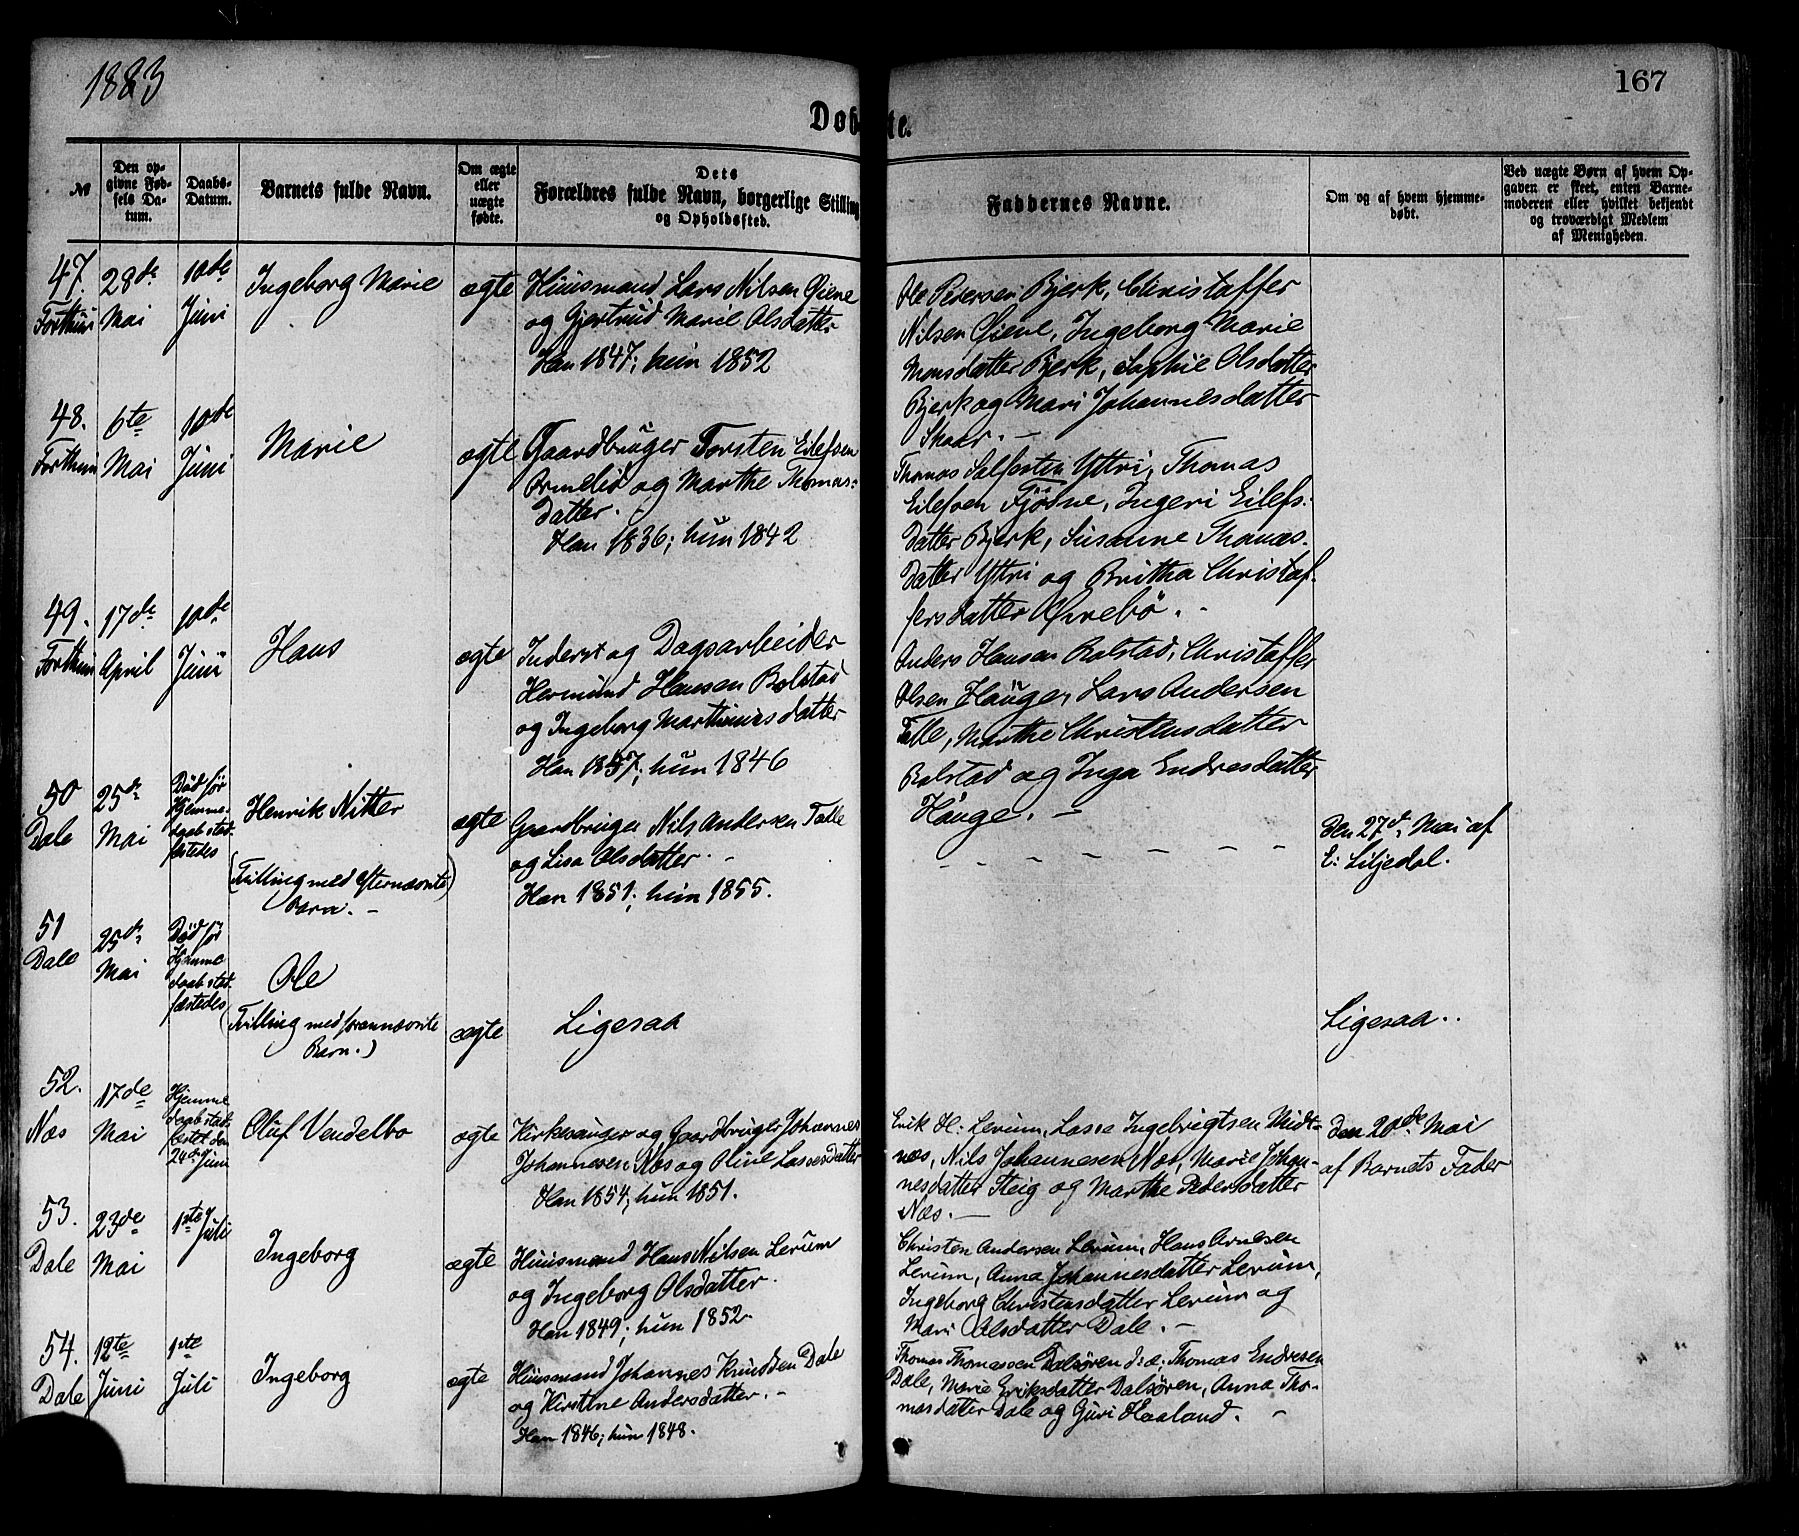 1883
167
Døbte.
№
Den op-
givne Fød-
sels Da-
tum.
Daabs-
Datum.
Barnets fulde Navn.
Om ægte
eller
uægte
fødte.
Dets
Forældres fulde Navn, borgerlige Stilling
og Opholdssted.
Faddernes Navne.
Om og af hvem hjemme-
døbt.
Ved uægte Børn af hvem Op-
gaven er skeet, enten Barne-
moderen eller hvilket bekjendt
og troværdigt Medlem
af Menigheden.
47.
Forthun
28de
Mai
10de
Juni
Ingeborg Marie
ægte
Huusmand Lars Nilsen Øiene
og Gjertrud Marie Olsdatter
Han 1847; hun 1852
Ole Pedersen Bjerk, Christaffer
Nilsen Øiene, Ingeborg Marie
Monsdatter Bjerk, Sophie Olsdatter
Bjerk og Mari Johannesdatter
Skaar. -
48.
Forthun
6te
Mai
10de
Juni
Marie
ægte
Gaardbruger Torsten Eilefsen
Ormelid og Marthe Thomas-
datter.
Han 1836; hun 1842
Thomas Salfestin Yttri, Thomas
Eilefsen Fjösne, Ingeri Eilefs-
datter Bjerk, Susanne Thomas-
datter Yttri og Britha Christaf-
fersdatter Øvrebö. -
49.
Forthun
17de
April
10de
Juni
Hans
ægte
Inderst og Dagsarbeider
Hermund Hansen Bolstad
og Ingeborg Marthinusdatter
Han 1857; hun 1846
Anders Hansen Bolstad, Christaffer
Olsen Hauge, Lars Andersen
Talle, Marthe Christensdatter
Bolstad og Inga Endresdatter
Hauge. -
50
Dale
25de
Mai
Død før
Hjemme-
daab stad-
fæstedes
Henrik Nitter
(Tvilling med efternævnte
Barn. -
ægte
Gaardbruger Nils Andersen Talle
og Lisa Olsdatter. -
Han 1851; hun 1855.
- - - - - - -
Den 27de Mai af
E. Liljedal.
51
Dale
25de
Mai
Død før
Hjemme
daab stad-
fæstedes
Ole
(Tvilling med forannævnte
Barn.)
ægte
Ligesaa
Ligesaa..
52.
Næs
17de
Mai
Hjemme
daab stad-
fæstet den
24de Juni
Oluf Vendelbo
ægte
Kirkesanger og Gaardbruger Johannes
Johannesen Næs og Oline Lassesdatter
Han 1854; hun 1851.
Erik H. Lerum, Lasse Ingebrigtsen Midt-
næs, Nils Johannesen Næs, Marie Johan-
nesdatter Steig og Marthe Pedersdatter
Næs. -
Den 20de Mai
af Barnets Fader
53.
Dale
23de
Mai
1ste Juli
Ingeborg
ægte
Huusmand Hans Nilsen Lerum
og Ingeborg Olsdatter.
Han 1849; hun 1852.
Christen Andersen Lerum, Hans Arnesen
Lerum, Anna Johannesdatter Lerum,
Ingeborg Christensdatter Lerum og
Mari Olsdatter Dale. -
54.
Dale
12te
Juni
1ste
Juli
Ingeborg
ægte
Huusmand Johannes Knudsen Dale
og Kirstine Andersdatter. -
Han 1846; hun 1848.
Thomas Thomassen Dalsören d:æ; Thomas Endresen
Dale, Marie Eriksdatter Dalsören, Anna Tho-
masdatter Dale og Guri Haaland. -